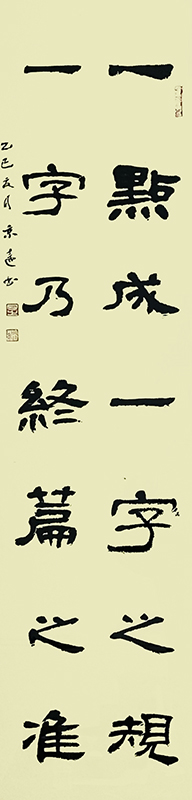 一點成一字之規
一字乃終篇之准
乙巳友月京達书